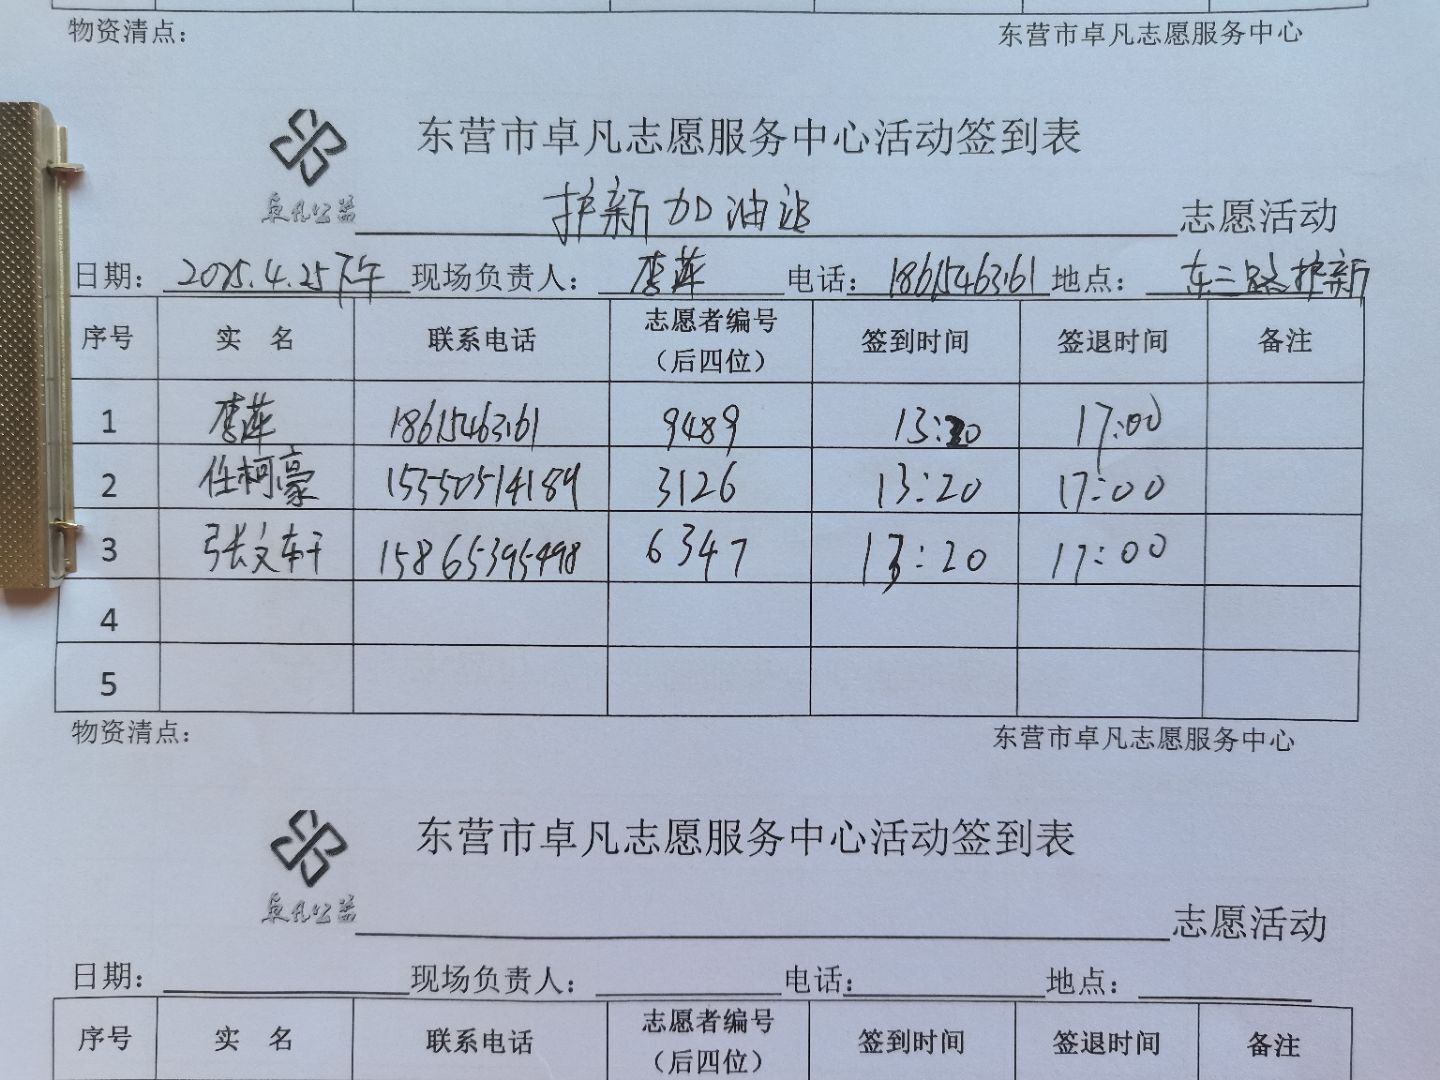 物资清点： 东营市卓凡志愿服务中心
东营市卓凡志愿服务中心活动签到表
卓凡公益 护新加油站 志愿活动
日期： 2025.4.25下午 现场负责人： 李萍 电话： 18615463161 地点： 东三路护新
序号 实 名 联系电话 志愿者编号（后四位） 签到时间 签退时间 备注
1 李萍 18615463161 9489 13:20 17:00
2 任柯豪 15550514189 3126 13:20 17:00
3 张文轩 15865395498 6347 13:20 17:00
4
5
物资清点： 东营市卓凡志愿服务中心
东营市卓凡志愿服务中心活动签到表
卓凡公益 志愿活动
日期： 现场负责人： 电话： 地点：
序号 实 名 联系电话 志愿者编号（后四位） 签到时间 签退时间 备注